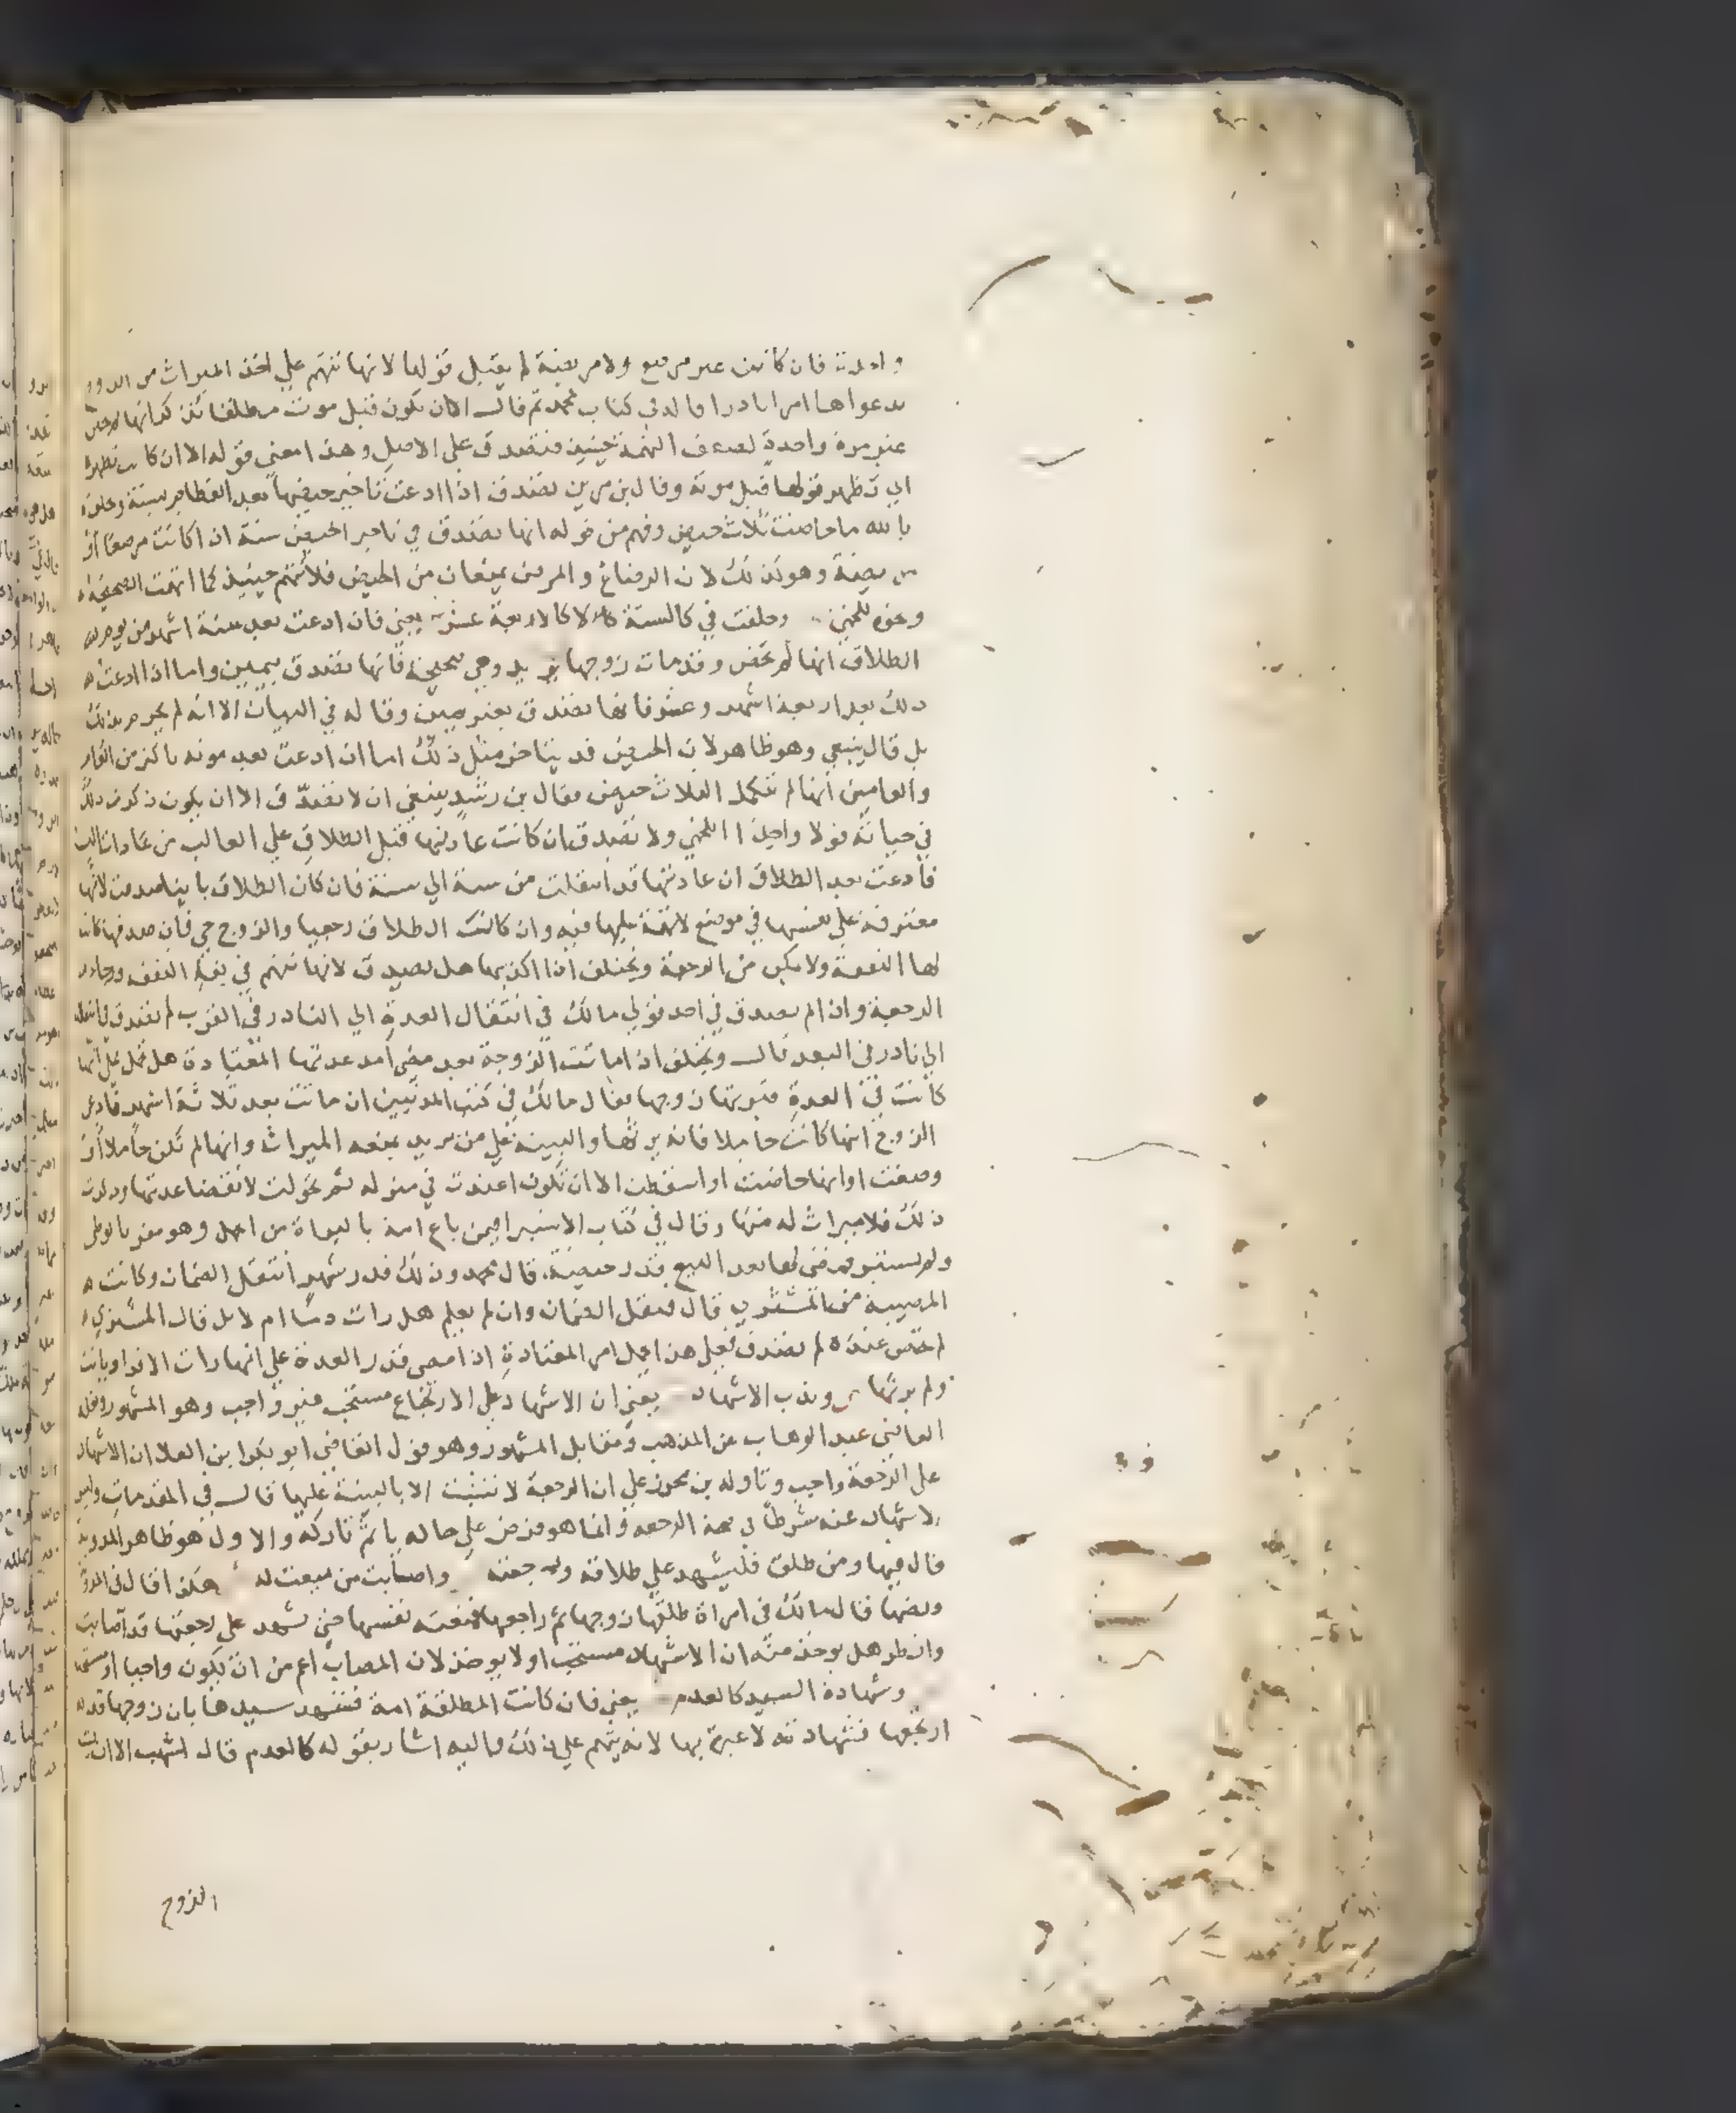 واحدة فان كانت غير مرضع ولا مريضة لم يقبل قولها لانها تتهم علي اخذ الميراث من الزوج
بدعواها امرا نادرا قاله في كتاب محمد ثم قال الا ان تكون قبل موت مطلقها تذكر انها لم تحض
غير مرة واحدة لضعف التهمة حينيذ فتصدق علي الاصل وهذا معني قوله الا ان كانت تظهره
اي تظهر قولها قبل موته وقال بن مزين تصدق اذا ادعت تاخير حيضها بعد الفطام بسنة وحلفت
بالله ما حاضت ثلاث حيض وفهم من قوله انها تصدق في تاخير الحيض سنة اذا كانت مرضعا او
مريضة وهو كذلك لان الرضاع والمرض يمنعان من الحيض فلا تتهم حينيذ كما اتهمت الصحيحة
ونحوه للخمي وحلفت في كالستة لا كالاربعة عشر يعني فان ادعت بعد ستة اشهر من يوم
الطلاق انها لم تحض وقد مات زوجها وهي صحيحة فانها تصدق بيمين واما اذا ادعت
ذلك بعد اربعة اشهر وعشر فانها تصدق بغير يمين وقاله في البيان الا انه لم يجزم بذلك
بل قال ينبغي وهو ظاهر لان الحيض قد يتاخر مثل ذلك اما ان ادعت بعد موته باكثر من العام
والعامين انها لم تكمل الثلاث حيض فقال بن رشد ينبغي ان لا تصدق الا ان يكون ذكرت ذلك
في حياته قولا واحدا اللخمي ولا تصدق ان كانت عادتها قبل الطلاق علي الغالب من عادات النسا
فادعت بعد الطلاق ان عادتها قد انتقلت من سنة الي سنة فان كان الطلاق باينا صدقت لانها
معترفة علي نفسها في موضع لا تهمة عليها فيه وان كانت الطلاق رجعيا والزوج حي فان صدقها كانت
لها النفقة ولا يمكن من الرجعة ويختلف اذا اكذبها هل تصدق لانها تتهم في بقا النفقة
الرجعة وان لم تصدق في احد قولي مالك في انتقال العدة الي النادر في القرب لم تصدق في انتقاله
الي نادر في البعد قال ويختلف اذا ماتت الزوجة بعد مضي امد عدتها المعتادة هل تحمل علي انها
كانت في العدة فيرثها زوجها فقال مالك في كتب المدنيين ان ماتت بعد ثلاثة اشهر فادعي
الزوج انها كانت حاملا فانه يرثها والبينة علي من يريد يمنعه الميراث وانها لم تكن حاملا او
وضعت او انها حاضت او اسقطت الا ان تكون اعتدت في منزله ثم تحولت لانقضا عدتها وذكرت
ذلك فلا ميراث له منها وقال في كتاب الاستبرا فيمن باع امة بالبراة من الحمل وهو مقر بالوطي
ولم يستبر فمضي لها بعد البيع قدر حيضة قال محمد وذلك قدر شهر انتقل الضمان وكانت
المصيبة من المشتري قال فنقل الضمان وان لم يعلم هل رات دما ام لا بل قال المشتري
لم تحض عندي لم يصدق فعلي هذا تحمل امر المعتادة اذا مضي قدر العدة علي انها رات الاقرا وبانت
ولم يرثها وندب الاشهاد يعني ان الاشهاد علي الارتجاع مستحب غير واجب وهو المشهور ونقله
القاضي عبد الوهاب عن المذهب ومقابل المشهور وهو قول القاضي ابو بكر ابن العلا ان الاشهاد
علي الرجعة واجب وتاوله بن محرز علي ان الرجعة لا تثبت الا بالبينة عليها قال في المقدمات وليس
الاشهاد عنده شرطا في صحة الرجعة وانما هو فرض علي حاله ياثم تاركه والاول هو ظاهر المدونة
قال فيها ومن طلق فليشهد علي طلاقه ورجعته واصابت من منعت له هكذا قال في المدونة
ونصها قال مالك في امراة طلقها زوجها ثم راجعها فمنعته نفسها حتي يشهد علي رجعتها قد اصابت
وانظر هل يوخذ منه ان الاشهاد مستحب او لا يوخذ لان المصاب اعم من ان يكون واجبا او مستحبا
وشهادة السيد كالعدم يعني فان كانت المطلقة امة فشهد سيدها بان زوجها قد
ارتجعها فشهادته لا عبرة بها لانه يتهم علي ذلك واليه اشار بقوله كالعدم قال اشهب الا ان
الزوج